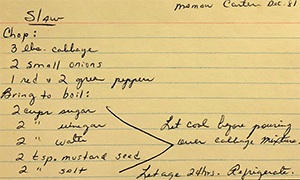 Maman Carter Dec. 81
Slaw
Chop:
3 lbs. cabbage
2 small onions
1 red & 2 green peppers
Bring to boil:
2 cups sugar
2 " vinegar
2 " water
2 tsp. mustard seed
2 " salt
Let cool before pouring
over cabbage mixture.
Let age 24 hrs. Refrigerate.